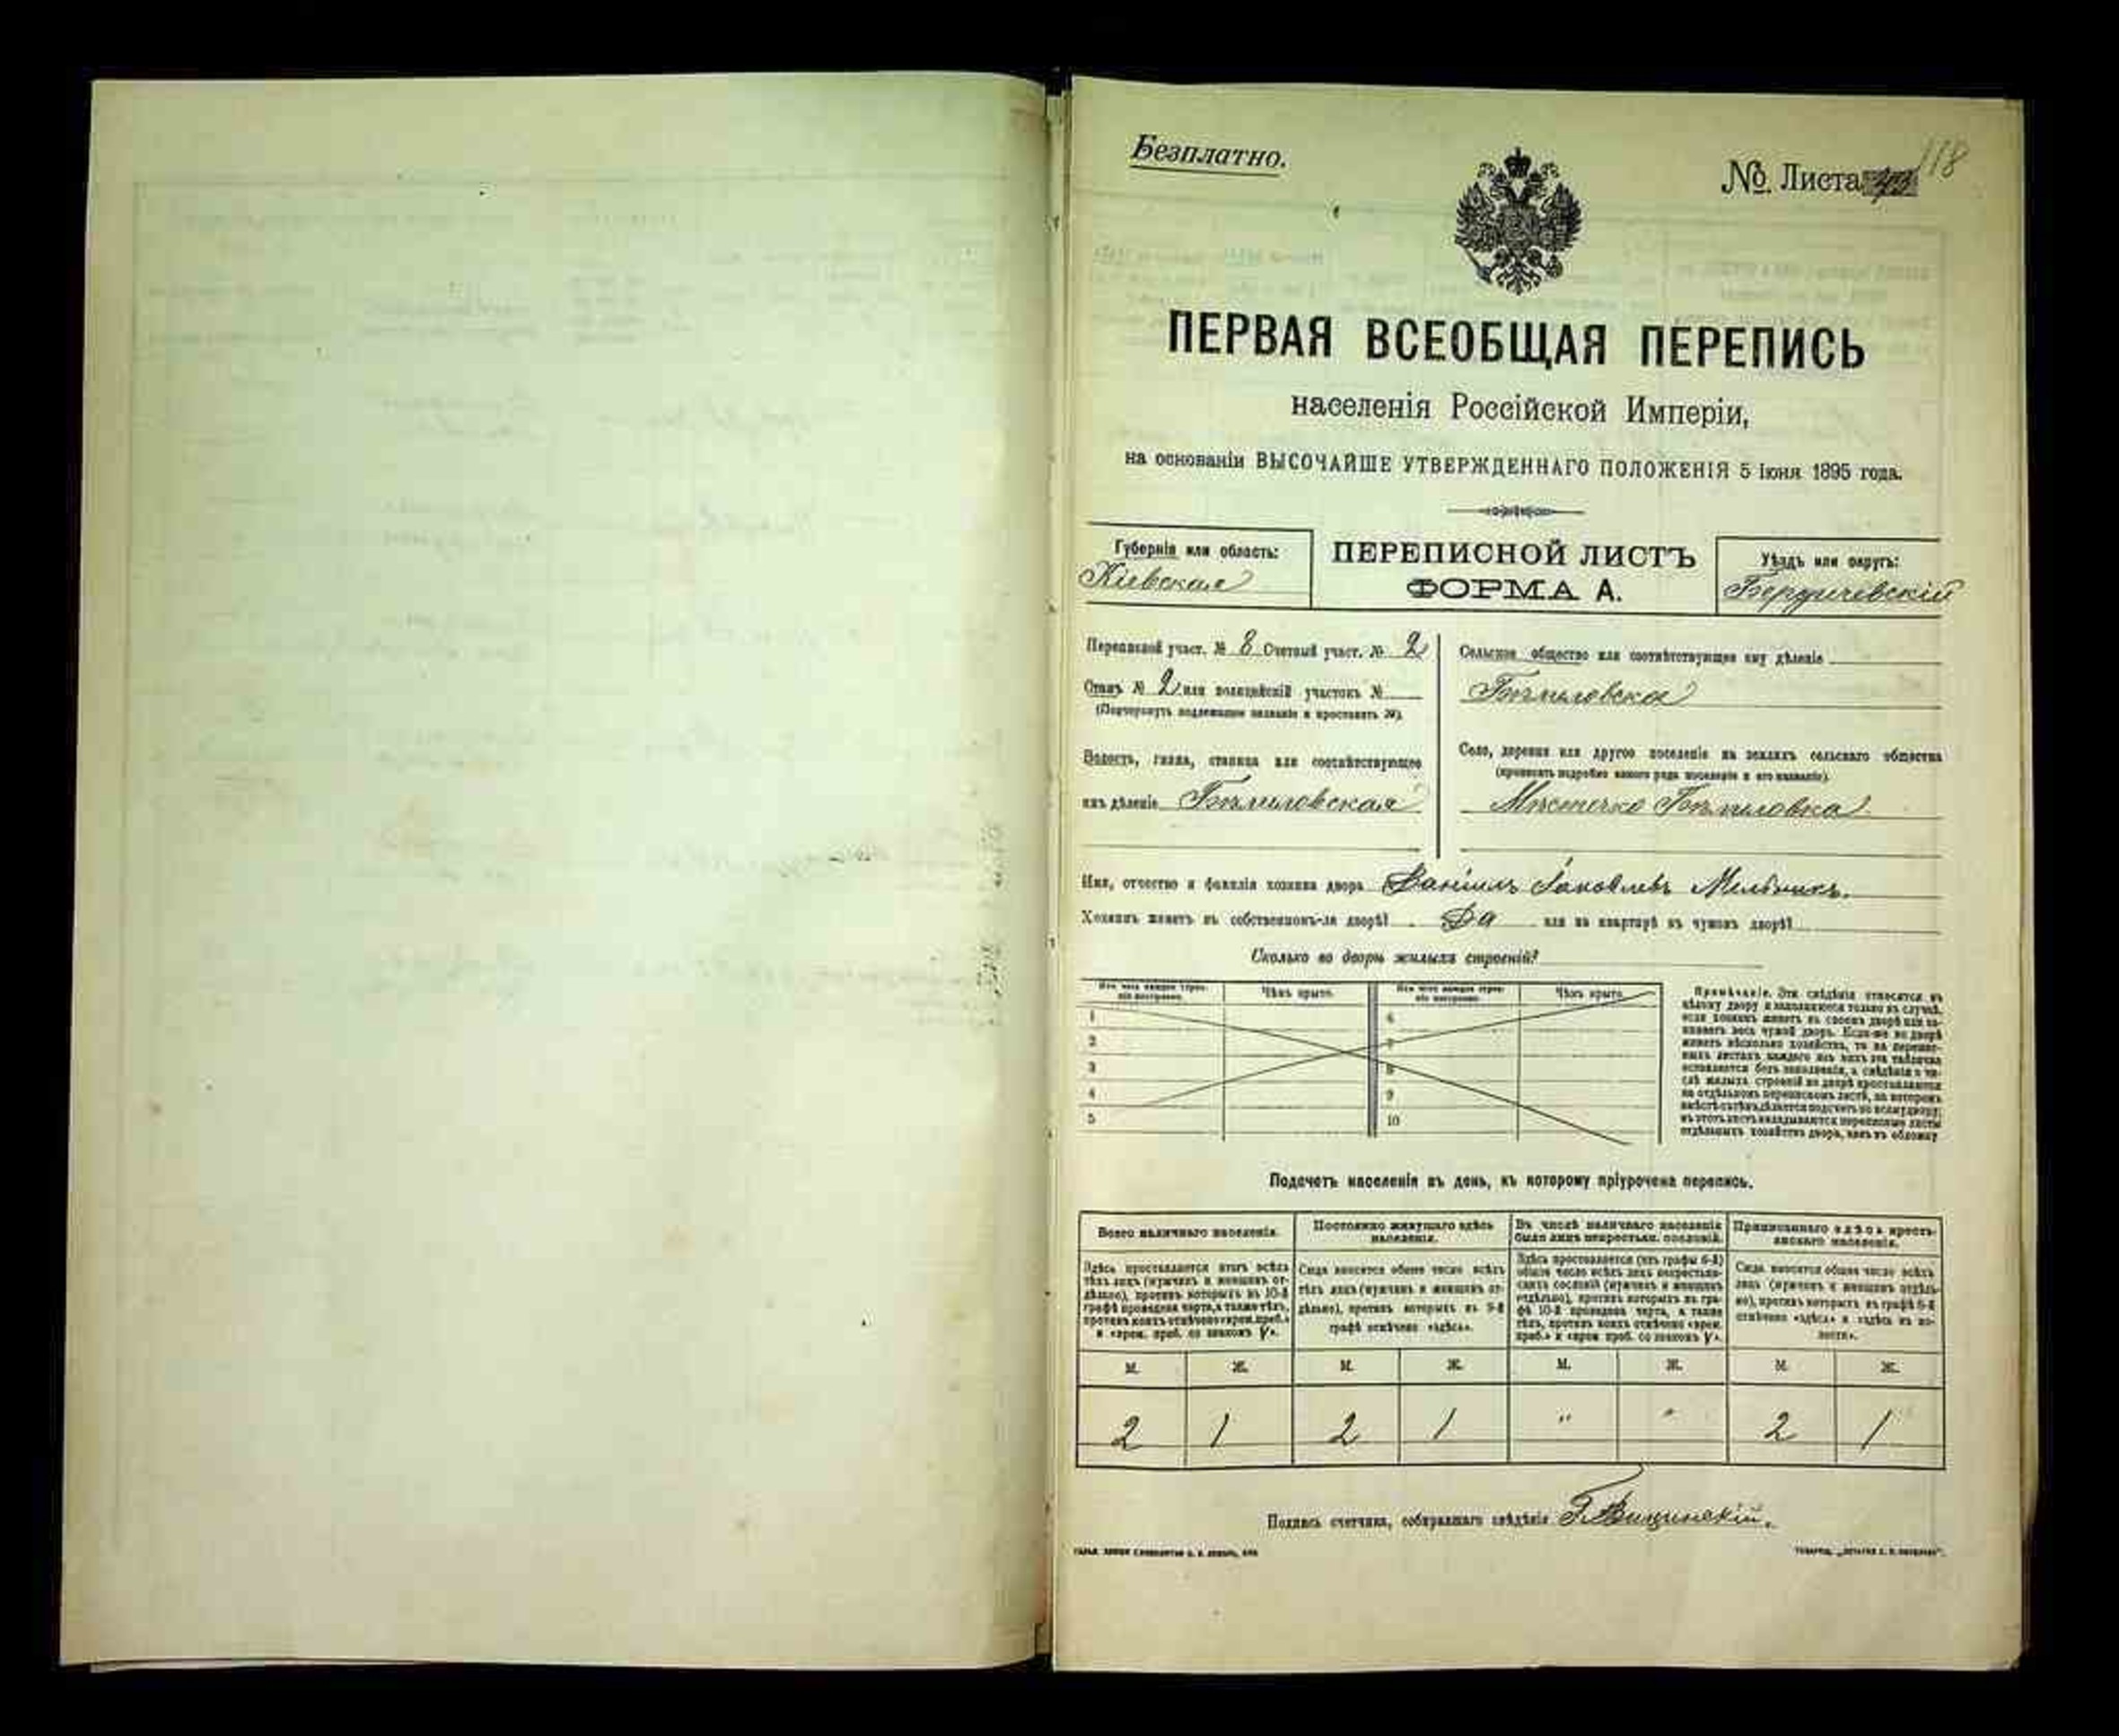 Безплатно.
№ Листа 118
ПЕРВАЯ ВСЕОБЩАЯ ПЕРЕПИСЬ
населенія Россійской Имперіи,
на основаніи ВЫСОЧАЙШЕ УТВЕРЖДЕННАГО ПОЛОЖЕНІЯ 5 Іюня 1895 года.
Губернія или область:
Кіевская
ПЕРЕПИСНОЙ ЛИСТЪ
ФОРМА А.
Уѣздъ или округъ:
Бердичевскій
Переписной участ. № 8 Счетный участ. № 2
Станъ № 2 или полицейскій участокъ №
(Подчеркнуть надлежащее названіе и проставить №).
Волость, гмина, станица или соотвѣтствующее
имъ дѣленіе Бѣлиловская
Сельское общество или соотвѣтствующее ему дѣленіе
Бѣлиловское
Село, деревня или другое поселеніе на земляхъ сельскаго общества
(прописать подробно какого рода поселеніе и его названіе).
Мѣстечко Бѣлиловка
Имя, отчество и фамилія хозяина двора Даніилъ Іаковлевъ Мельникъ.
Хозяинъ живетъ въ собственномъ-ли дворѣ? Да или на квартирѣ въ чужомъ дворѣ?
Сколько во дворѣ жилыхъ строеній?
Изъ чего каждое строе-
ніе построено.
Чѣмъ крыто.
Изъ чего каждое строе-
ніе построено.
Чѣмъ крыто.
1
2
3
4
5
6
7
8
9
10
Примѣчаніе. Эти свѣдѣнія относятся къ
цѣлому двору и заполняются только въ случаѣ,
если хозяинъ живетъ въ своемъ дворѣ или за-
нимаетъ весь чужой дворъ. Если-же во дворѣ
живетъ нѣсколько хозяйствъ, то на перепис-
ныхъ листахъ каждаго изъ нихъ эта табличка
оставляется безъ заполненія, а свѣдѣнія о чи-
слѣ жилыхъ строеній во дворѣ проставляются
на отдѣльномъ переписномъ листѣ, на которомъ
вмѣстѣ съ тѣмъ дѣлается подсчетъ по всему двору;
въ этотъ листъ вкладываются переписные листы
отдѣльныхъ хозяйствъ двора, какъ въ обложку
Подсчетъ населенія въ день, къ которому пріурочена перепись.
Всего наличнаго населенія.
Здѣсь проставляется итогъ всѣхъ
тѣхъ лицъ (мужчинъ и женщинъ от-
дѣльно), противъ которыхъ въ 10-й
графѣ проведена черта, а также тѣхъ,
противъ коихъ отмѣчено «врем. преб.»
и «врем. проб. со знакомъ V».
Постоянно живущаго здѣсь
населенія.
Сюда вносится общее число всѣхъ
тѣхъ лицъ (мужчинъ и женщинъ от-
дѣльно), противъ которыхъ въ 9-й
графѣ отмѣчено «здѣсь».
Въ числѣ наличнаго населенія
было лицъ некрестьян. сословій.
Здѣсь проставляется (изъ графы 6-й)
общее число всѣхъ лицъ некрестьян-
скихъ сословій (мужчинъ и женщинъ
отдѣльно), противъ которыхъ въ гра-
фѣ 10-й проведена черта, а также
тѣхъ, противъ коихъ отмѣчено «врем.
преб.» и «врем проб. со знакомъ V».
Приписаннаго здѣсь кресть-
янскаго населенія.
Сюда вносится общее число всѣхъ
лицъ (мужчинъ и женщинъ отдѣль-
но), противъ которыхъ въ графѣ 8-й
отмѣчено «здѣсь» и «здѣсь въ во-
лости».
М. Ж. М. Ж. М. Ж. М. Ж.
2 1 2 1 " " 2 1
Подпись счетчика, собиравшаго свѣдѣнія